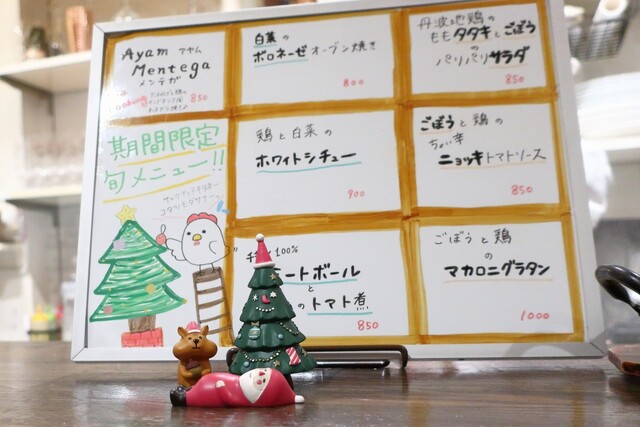 Ayam アヤム
Mentega
メンテガ
850
期間限定
旬メニュー!!
白菜の
ボロネーゼ オーブン焼き
800
丹波地鶏の
ももタタキとごぼう
の
パリパリサラダ
850
鶏と白菜の
ホワイトシチュー
900
ごぼうと鶏の
ちょい辛
ニョッキトマトソース
850
100%
ートボール
と
のトマト煮
850
ごぼうと鶏
の
マカロニグラタン
1000